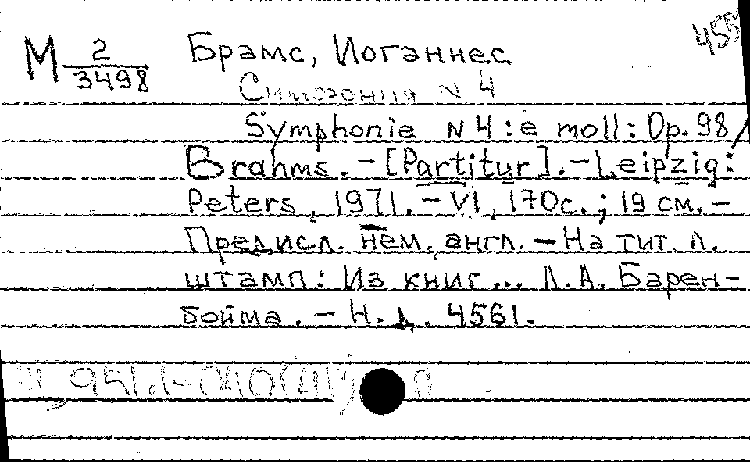 455
М 2/3498 Брамс, Иоганнес
Симфония N 4
Symphonie N 4 : e moll : Op. 98 /
Brahms. – [Partitur]. – Leipzig:
Peters, 1971. – VI, 170с. ; 19 см. –
Предисл. нем., англ. – На тит. л.
штамп: Из книг ... Л.А. Барен-
бойма. – Н.д. 4561.